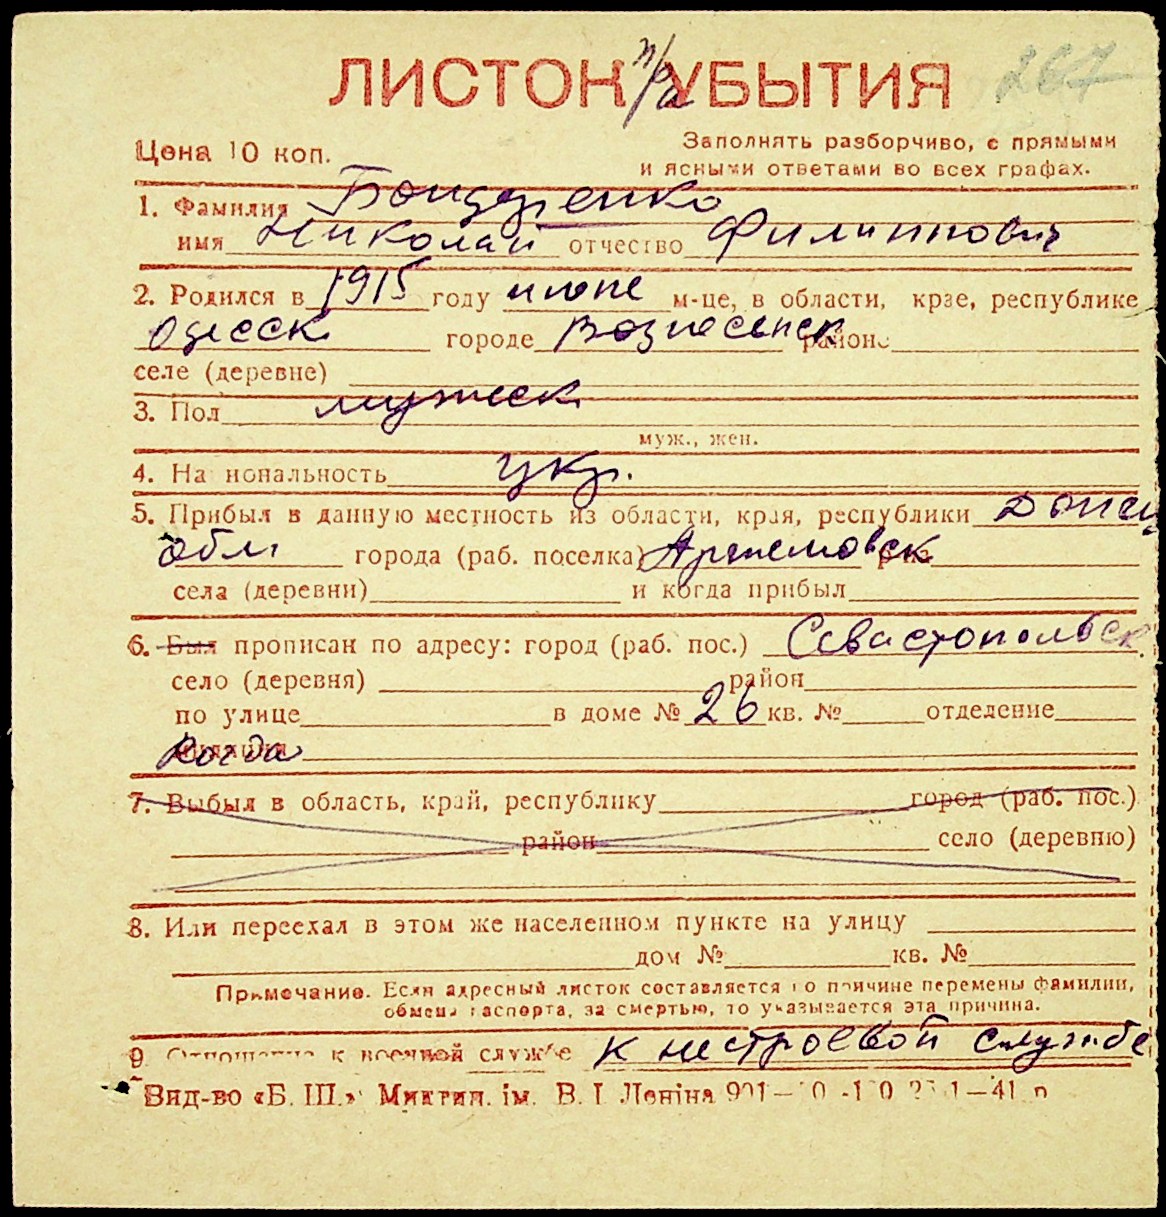 ЛИСТОК п/а УБЫТИЯ 267
Цена 10 коп.
Заполнять разборчиво, с прямыми
и ясными ответами во всех графах.
1. Фамилия Бондаренко
имя Николай отчество Филиппович
2. Родился в 1915 году июне м-це, в области, крае, республике
Одесск городе Вознесенск районе
селе (деревне)
3. Пол мужск
муж., жен.
4. Национальность укр.
5. Прибыл в данную местность из области, края, республики Донец
обл города (раб. поселка) Артемовск
села (деревни) и когда прибыл
6. Был прописан по адресу: город (раб. пос.) Севастопольск
село (деревня) район
по улице в доме № 26 кв. № отделение
Когда
7. Выбыл в область, край, республику город (раб. пос.)
район село (деревню)
8. Или переехал в этом же населенном пункте на улицу
дом № кв. №
Примечание. Если адресный листок составляется по причине перемены фамилии,
обмена паспорта, за смертью, то указывается эта причина.
9 Отношение к военной службе к нестроевой службе
Вид-во «Б. Ш.» Миктип. ім. В. І Леніна